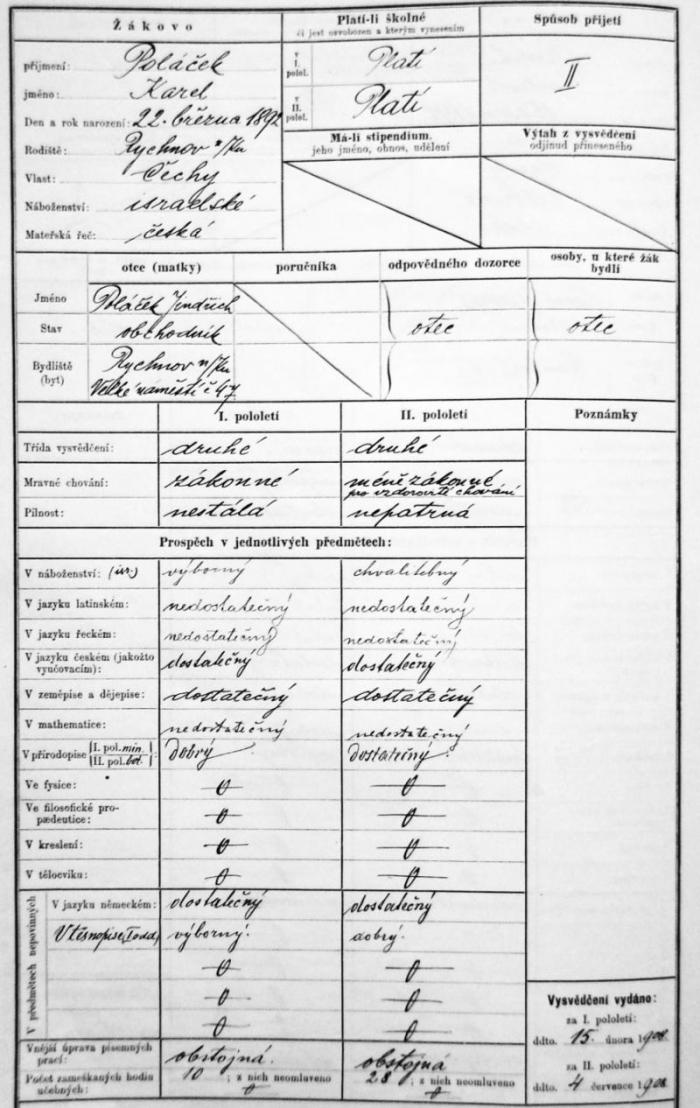 Žákovo
příjmení: Poláček
jméno: Karel
Den a rok narození: 22. března 1892
Rodiště: Rychnov n/Kn
Vlast: Čechy
Náboženství: israelské
Mateřská řeč: česká
Platí-li školné
či jest osvobozen a kterým vynesením
v I. polol. Platí
v II. polol. Platí
Způsob přijetí
II
Má-li stipendium.
jeho jméno, obnos, udělení
Výtah z vysvědčení
odjinud přineseného
otce (matky) poručníka odpovědného dozorce osoby, u které žák
bydlí
Jméno Poláček Jindřich
Stav obchodník otec otec
Bydliště Rychnov n/Kn
(byt) Velké náměstí č 47
I. pololetí II. pololetí Poznámky
Třída vysvědčení: druhé druhé
Mravné chování: zákonné méně zákonné
pro vzdorovité chování
Pilnost: nestálá nepatrná
Prospěch v jednotlivých předmětech:
V náboženství: (isr.) výborný chvalitebný
V jazyku latinském: nedostatečný nedostatečný
V jazyku řeckém: nedostatečný nedostatečný
V jazyku českém (jakožto
vyučovacím): dostatečný dostatečný
V zeměpise a dějepise: dostatečný dostatečný
V mathematice: nedostatečný nedostatečný
V přírodopise I. pol. min. II. pol. bot. : dobrý dostatečný.
Ve fysice: 0 0
Ve filosofické pro-
pædeutice: 0 0
V kreslení: 0 0
V tělocviku: 0 0
V předmětech nepovinných
V jazyku německém: dostatečný dostatečný
V těsnopise (I. odd.) výborný. dobrý.
0 0
0 0
0 0
Vnější úprava písemných
prací: obstojná. obstojná
Počet zameškaných hodin 10 ; z nich neomluveno 28 ; z nich neomluveno
učebných: 0 0
Vysvědčení vydáno:
za I. pololetí:
ddto. 15. února 1908.
za II. pololetí:
ddto. 4 července 1908